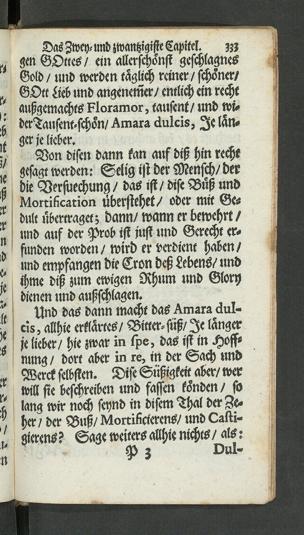 Das Zwey- und zwantzigiste Capitel. 333
gen GOttes / ein allerschönst geschlagnes
Gold / und werden täglich reiner / schöner /
GOtt Lieb und angenemer / entlich ein recht
außgemachts Floramor, tausent / und wi-
der Tausent-schön / Amara dulcis, Je län-
ger je lieber.
Von disen dann kan auf diß hin recht
gesagt werden: Selig ist der Mensch / der
die Versuechung / das ist / dise Büß und
Mortification überstehet / oder mit Ge-
dult übertraget; dann / wann er bewehrt /
und auf der Prob ist just und Gerecht er-
funden worden / wird er verdient haben /
und empfangen die Cron deß Lebens / und
ihme diß zum ewigen Rhum und Glory
dienen und außschlagen.
Und das dann macht das Amara dul-
cis, allhie erklärtes / Bitter-süß / Je länger
je lieber / hie zwar in spe, das ist in Hoff-
nung / dort aber in re, in der Sach und
Werck selbsten. Dise Süßigkeit aber / wer
will sie beschreiben und fassen könden / so
lang wir noch seynd in disem Thal der Ze-
her / der Buß / Mortificierens / und Casti-
gierens? Sage weiters allhie nichts / als:
P 3 Dul-